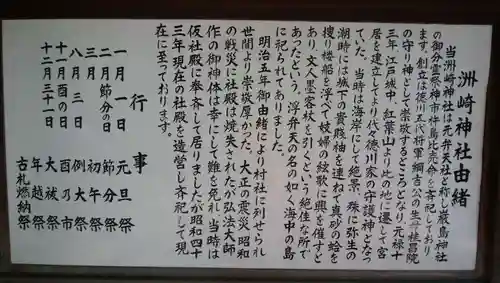 洲崎神社由緒
当洲崎神社は元弁天社と称し厳島神社
の御分霊祭神市杵島比売命を斉祀しており
ます。創立は徳川五代将軍綱吉公の生母桂昌院
の守り神として崇敬するところとなり、元禄十
三年、江戸城中、紅葉山より此の地に遷して宮
居を建立してより代々徳川家の守護神となっ
ていた。当時は海岸にして絶景、殊に弥生の
潮時には城下の貴賎袖を連ねて真砂の蛤を
捜り楼船を浮べて妓婦の絃歌に興を催すと
あり、文人墨客杖を引くという絶佳な所で
あったという。浮弁天の名の如く海中の島
に祀られてありました。
明治五年御由緒により村社に列せられ
世間より崇敬厚かった。大正の震災、昭和
の戦災に社殿は焼失されたが弘法大師
作の御神体は幸にして難を免れ当時は
仮社殿に奉斉して居りましたが昭和四十
三年現在の社殿を造営し斉祀して現
在に至っております。
行事
一月一日 元旦祭
二月節分の日 節分祭
三月 初午祭
八月三日 例大祭
十一月酉の日 酉乃市
十二月三十一日 大祓祭
年越祭
古札燃納祭